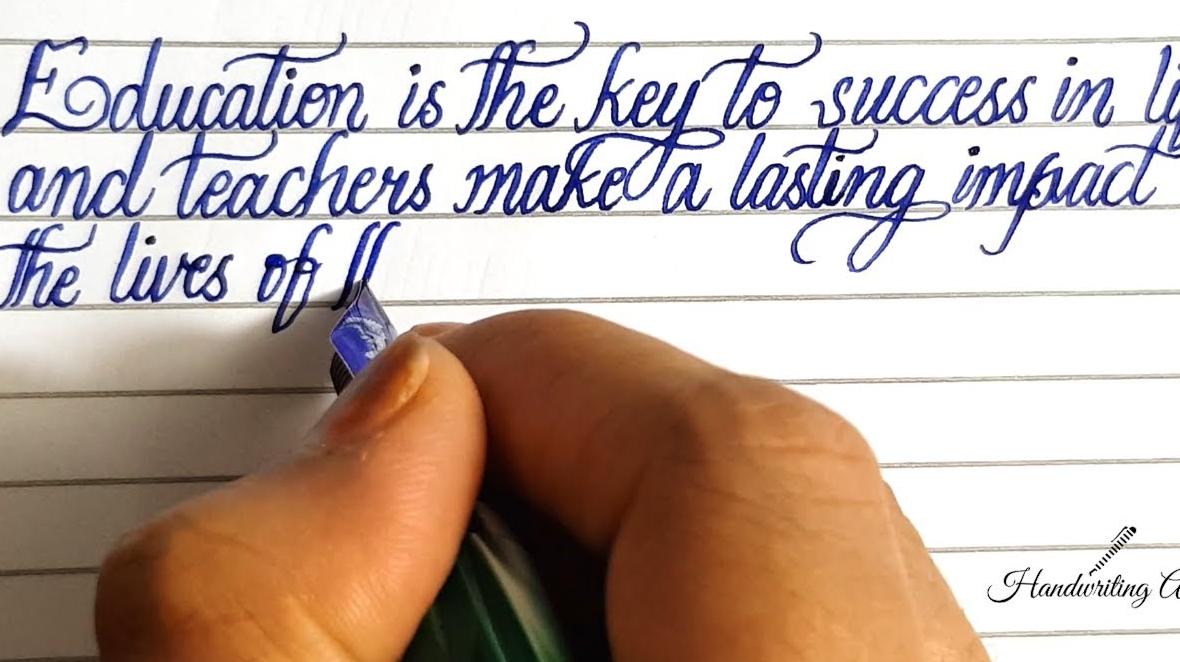 Education is the key to success in li
and teachers make a lasting impact
the lives of
Handwriting A